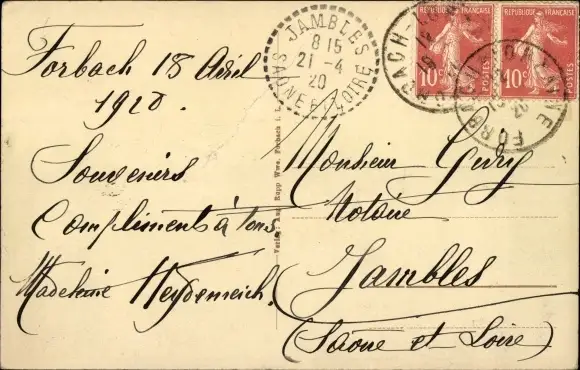 Forbach 18 Avril
1920.
Souvenirs
Compliments à tous
Madeleine Heydenreich.
JAMBLES
8 15
21-4
20
SAONE-ET-LOIRE
Verlag: Aug. Rapp Wwe. Forbach i. L.
REPUBLIQUE FRANÇAISE
10c
POSTES
REPUBLIQUE FRANÇAISE
10c
POSTES
FORBACH
Monsieur
Notaire
Jambles
(Saône et Loire)